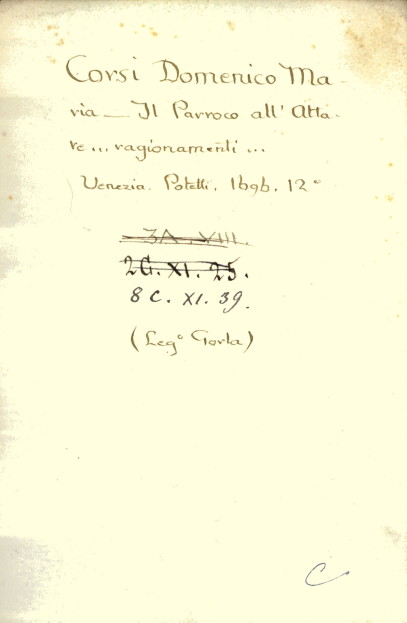 Corsi Domenico Ma-
ria — Il Parroco all'Alta-
re... ragionamenti...
Venezia. Poletti. 1696. 12°
3A. VIII.
2G. XI. 25.
8 C. XI. 39.
(Leg° Gorla)
C